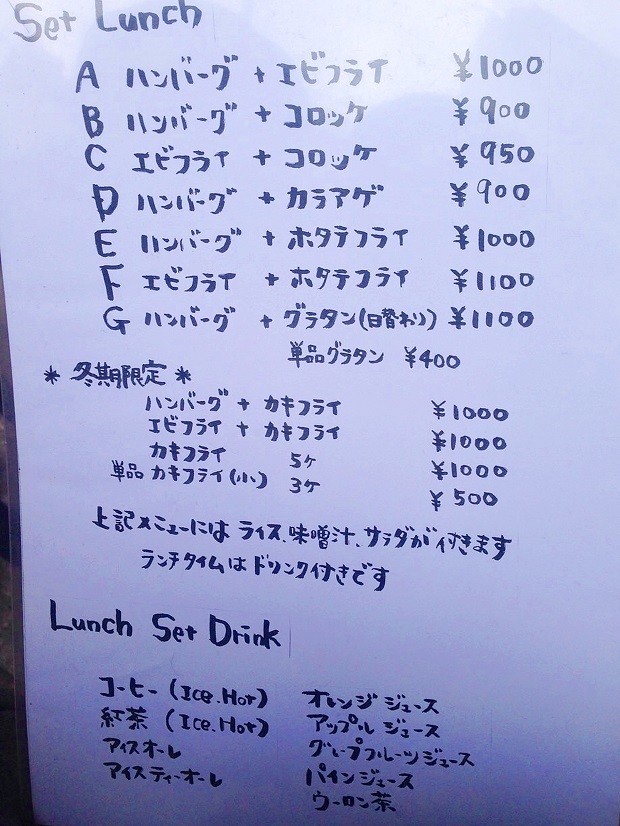 Set Lunch
A ハンバーグ + エビフライ ¥1000
B ハンバーグ + コロッケ ¥900
C エビフライ + コロッケ ¥950
D ハンバーグ + カラアゲ ¥900
E ハンバーグ + ホタテフライ ¥1000
F エビフライ + ホタテフライ ¥1100
G ハンバーグ + グラタン(日替わり) ¥1100
単品グラタン ¥400
* 冬期限定 *
ハンバーグ + カキフライ ¥1000
エビフライ + カキフライ ¥1000
カキフライ 5ケ ¥1000
単品 カキフライ(小) 3ケ ¥500
上記メニューには ライス、味噌汁、サラダが付きます
ランチタイムはドリンク付きです
Lunch Set Drink
コーヒー (Ice.Hot) オレンジジュース
紅茶 (Ice.Hot) アップルジュース
アイスオーレ グレープフルーツジュース
アイスティーオーレ パインジュース
ウーロン茶